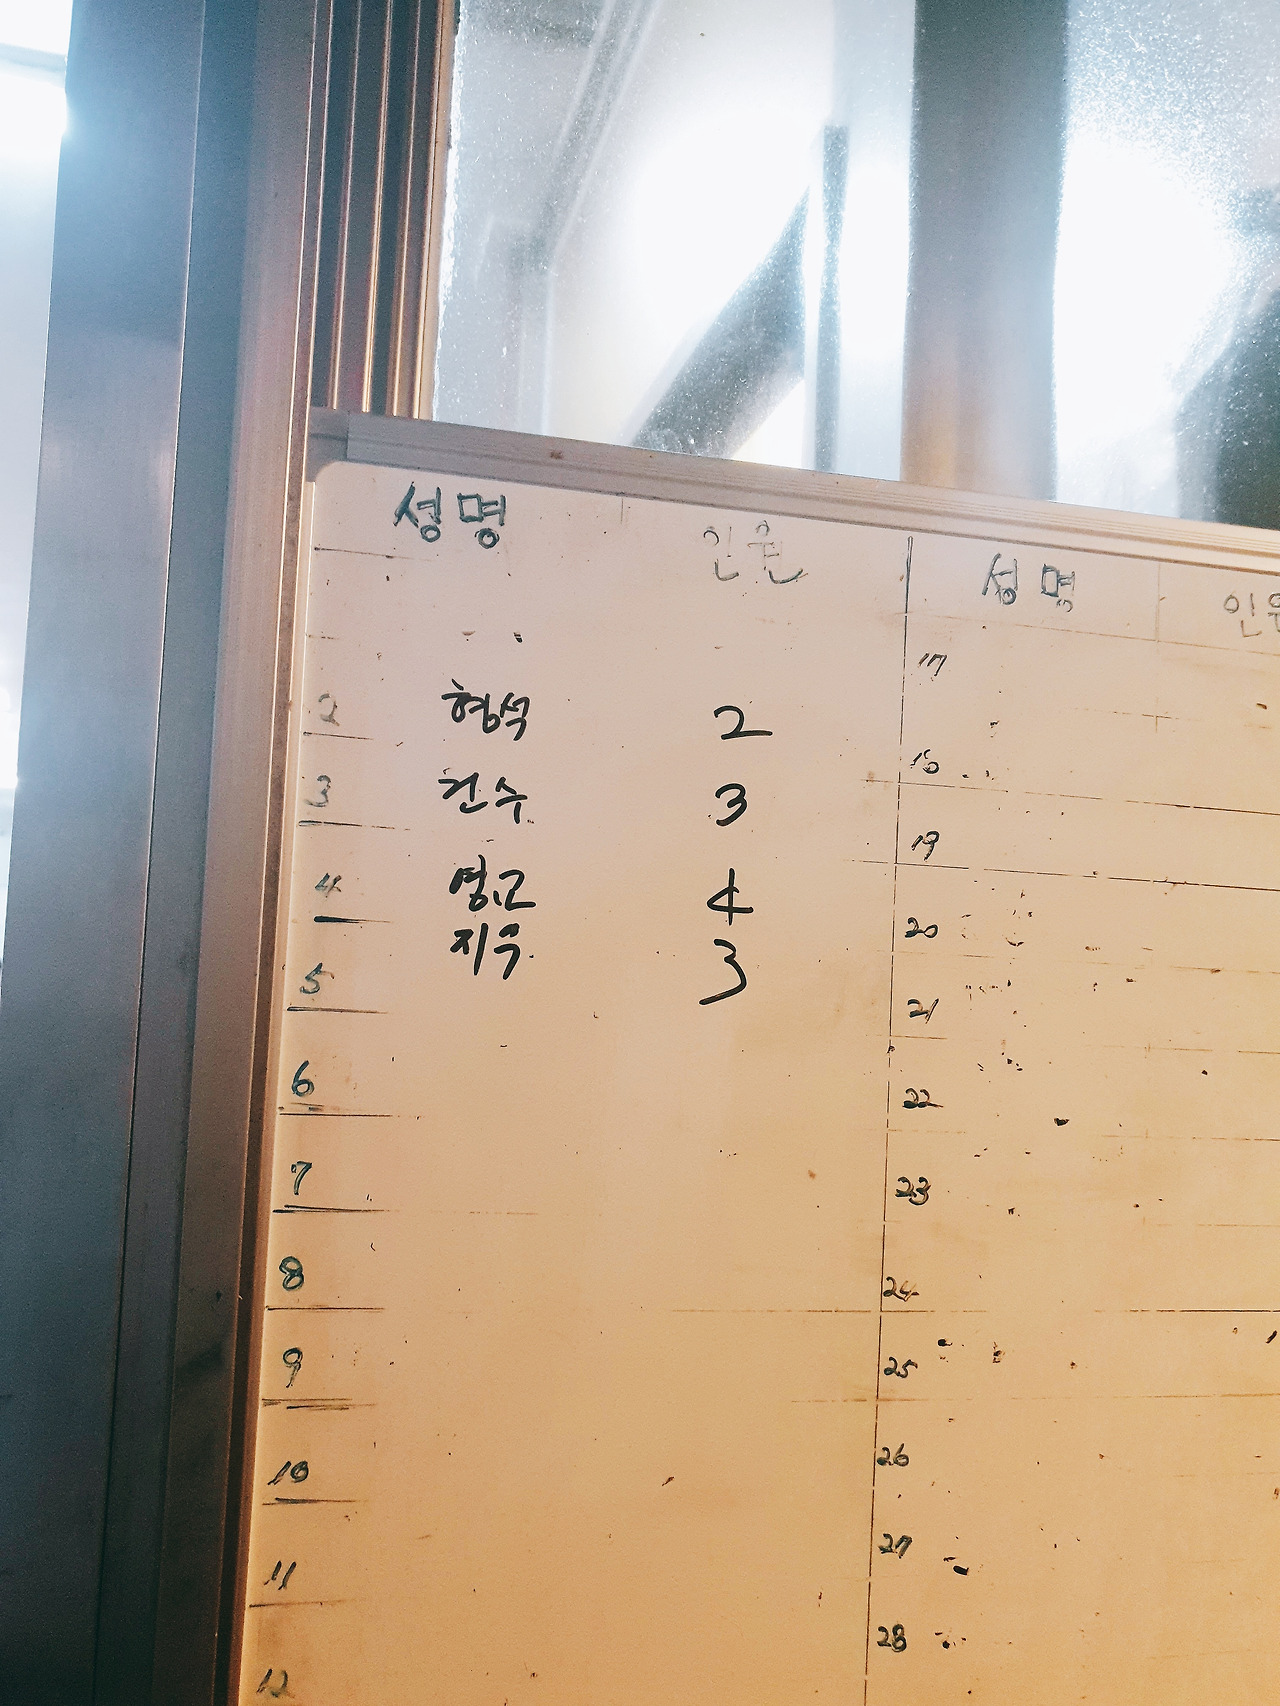 성명 인원
2 형석 2
3 건수 3
4 영고 4
5 지우 3
6
7
8
9
10
11
12
성명 인원
17
18
19
20
21
22
23
24
25
26
27
28